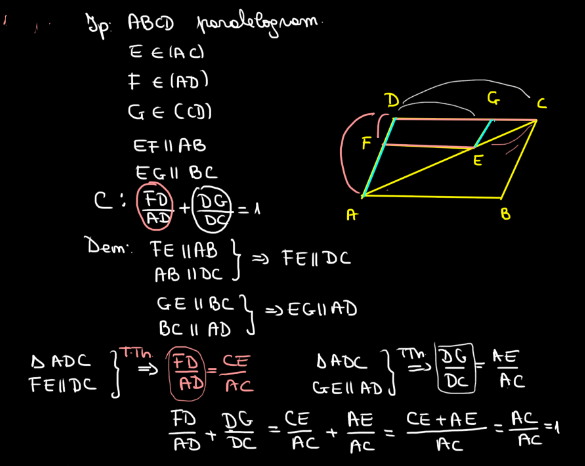 Ip: ABCD paralelogram.
E ∈ (AC)
F ∈ (AD)
G ∈ (CD)
EF ∥ AB
EG ∥ BC
C: FD/AD + DG/DC = 1
D G C
F E
A B
Dem: FE ∥ AB
AB ∥ DC } ⇒ FE ∥ DC
GE ∥ BC
BC ∥ AD } ⇒ EG ∥ AD
Δ ADC
FE ∥ DC } T.Th. ⇒ FD/AD = CE/AC
Δ ADC
GE ∥ AD } TTh ⇒ DG/DC = AE/AC
FD/AD + DG/DC = CE/AC + AE/AC = CE+AE/AC = AC/AC = 1